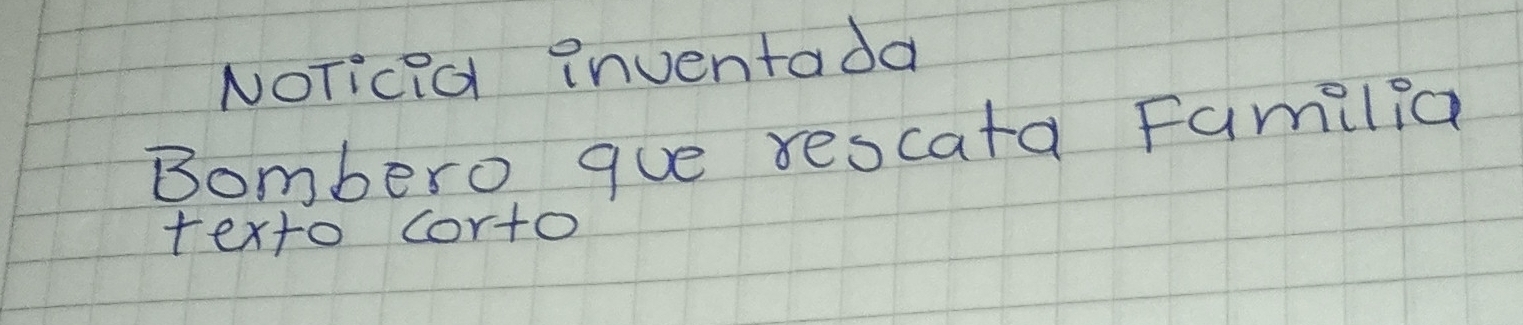 NOTicia inventada
Bombero que rescata Familia
texto corto